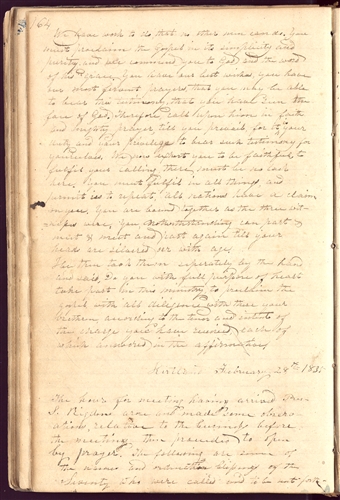 164
You have work to do that no other men can do, you
must proclaim the Gospel in its simplicity and
purity, and we commend you to God and the word
of his grace, You have our best wishes, you have
our most fervent prayers that you may be able
to bear this testimony, that you have seen the
face of God, Therefore call upon him in faith
and mighty prayer, till you prevail, for it is your
duty and your privilege to bear such testimony for
yourselves. We now exhort you to be faithful to
fulfil your calling, there must be no lack
here, you must fulfil in all things, and
permit us to repeat, all nations have a claim
on you, You are bound together as the three wit-
nesses were, you notwithstanding can part &
meet & meet and part again till your
heads are silvered over with age.
He then took them seperately by the hand
and said, Do you with full purpose of heart
take part in this ministry, to proclaim the
gospel with all diligence with these your
brethren according to the tenor and intent of
the charge you have received, each of
which answered in the affirmative.
Kirtland February 28th 1835
The hour for meeting having arrived Pres
S. Rigdon arose and made some observ-
ations relative to the business before
the meeting, then proceeded to open
by prayer. The following are some of
the names and ordination blessings of the
Seventy who were called and to be sent forth